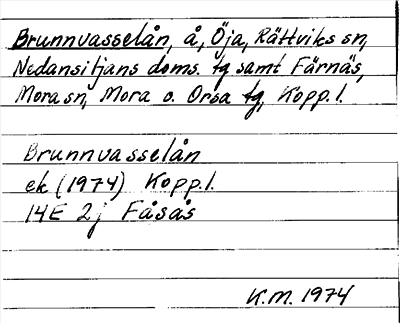 Brunnvasselån, å, Öja, Rättviks sn,
Nedansiljans doms. tg samt Färnäs,
Mora sn, Mora o. Orsa tg, Kopp. l.
Brunnvasselån
ek (1974) Kopp. l.
14E 2j Fåsås
K.M. 1974